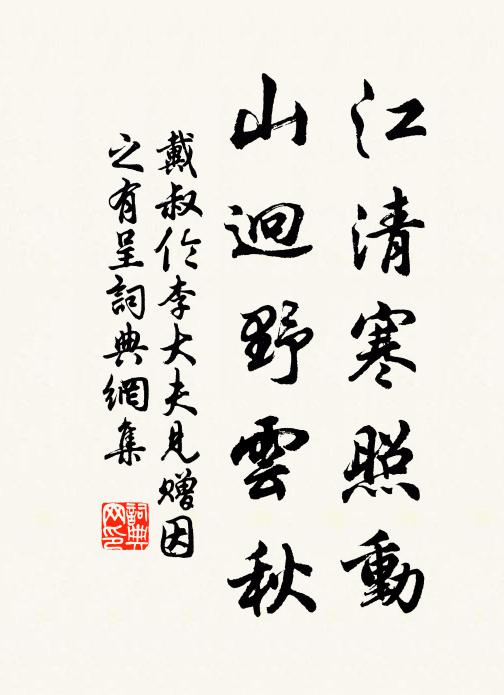 江清寒照動
山迥野雲秋
戴叔伦李大夫見赠因
之有呈詞典網集
詞典
网印